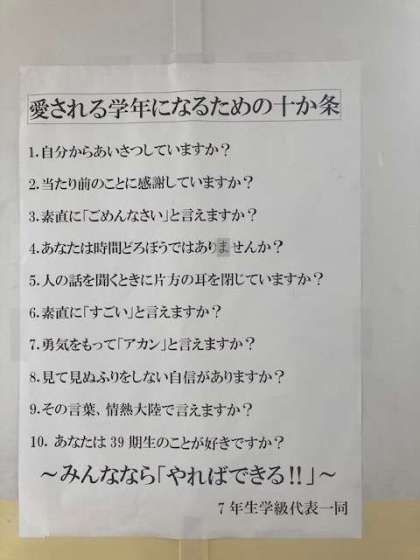 愛される学年になるための十か条
1.自分からあいさつしていますか？
2.当たり前のことに感謝していますか？
3.素直に「ごめんなさい」と言えますか？
4.あなたは時間どろぼうではありませんか？
5.人の話を聞くときに片方の耳を閉じていますか？
6.素直に「すごい」と言えますか？
7.勇気をもって「アカン」と言えますか？
8.見て見ぬふりをしない自信がありますか？
9.その言葉、情熱大陸で言えますか？
10. あなたは39期生のことが好きですか？
～みんななら「やればできる!!」～
7年生学級代表一同